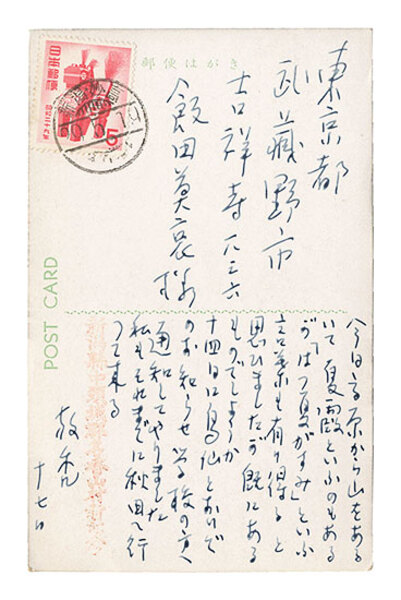 郵便はがき
東京都
武蔵野市
吉祥寺 八三六
飯田莫哀様
今日高原から山をある
いて夏霞といふのもある
が「はつ夏がすみ」といふ
言葉も有り得ると
思ひましたが既にある
ものでしょうか
十四日に鳥仙とあいて
のお知らせ 学校の方へ
通知してやりました
私もそれまでに秋田へ行
って来る
敬白
十七日
POST CARD
日本郵便
5